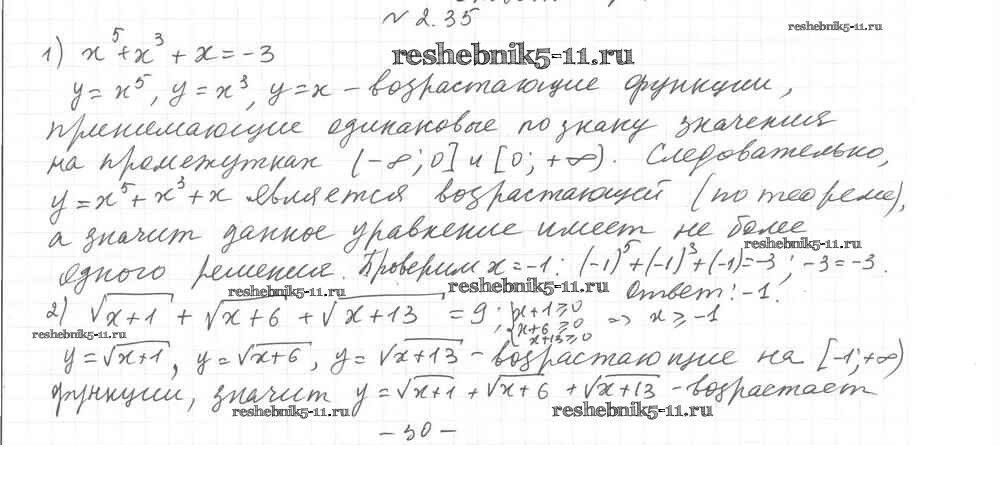 № 2.35
reshebnik5-11.ru
1) x⁵+x³+x=-3
reshebnik5-11.ru
y=x⁵, y=x³, y=x – возрастающие функции,
принимающие одинаковые по знаку значения
на промежутках (-∞;0] и [0;+∞). Следовательно,
y=x⁵+x³+x является возрастающей (по теореме),
а значит данное уравнение имеет не более
reshebnik5-11.ru
одного решения. Проверим x=-1: (-1)⁵+(-1)³+(-1)=-3; -3=-3.
reshebnik5-11.ru
reshebnik5-11.ru
Ответ: -1.
2) √x+1 + √x+6 + √x+13 = 9; { x+1≥0 x+6≥0 x+13≥0 => x≥-1
reshebnik5-11.ru
y=√x+1, y=√x+6, y=√x+13 – возрастающие на [-1;+∞)
функции, значит y=√x+1+√x+6+√x+13 – возрастает
reshebnik5-11.ru
reshebnik5-11.ru
-30-